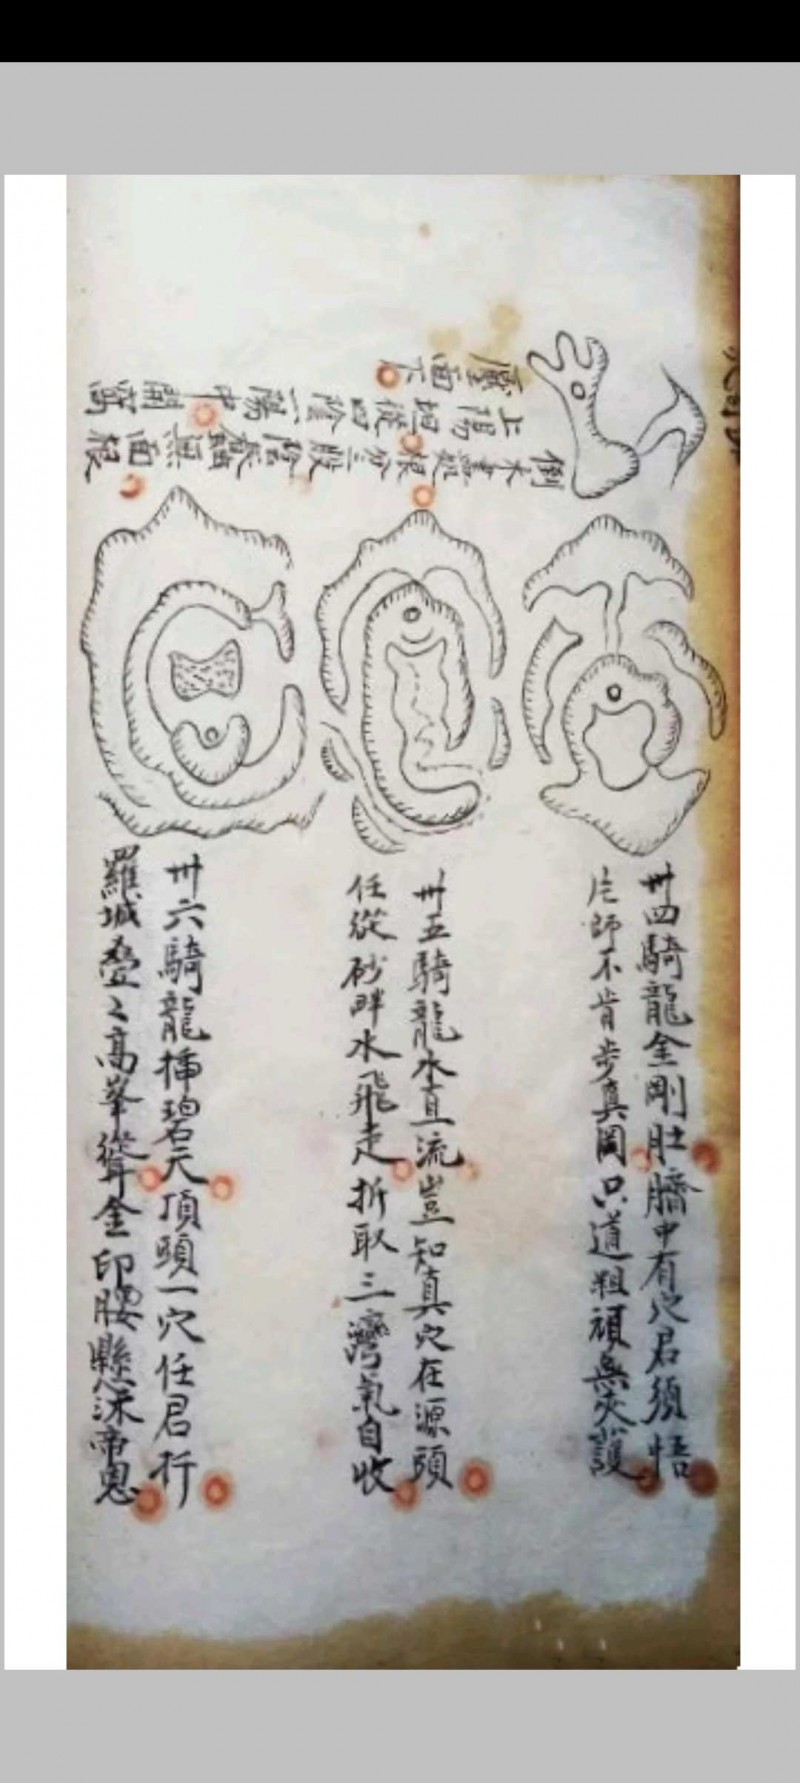 倒木盡處根分三股陰長面根
上陽坦從四陰一陽中開窩
靨面下
卅四騎龍金剛肚臍中有穴君須悟
凡師不肯步真岡只道粗頑無夾護
卅五騎龍水直流豈知真穴在源頭
任從砂畔水飛走折取三灣氣自收
卅六騎龍插碧天頂頭一穴任君行
羅城叠々高峯聳金印腰懸沐帝恩